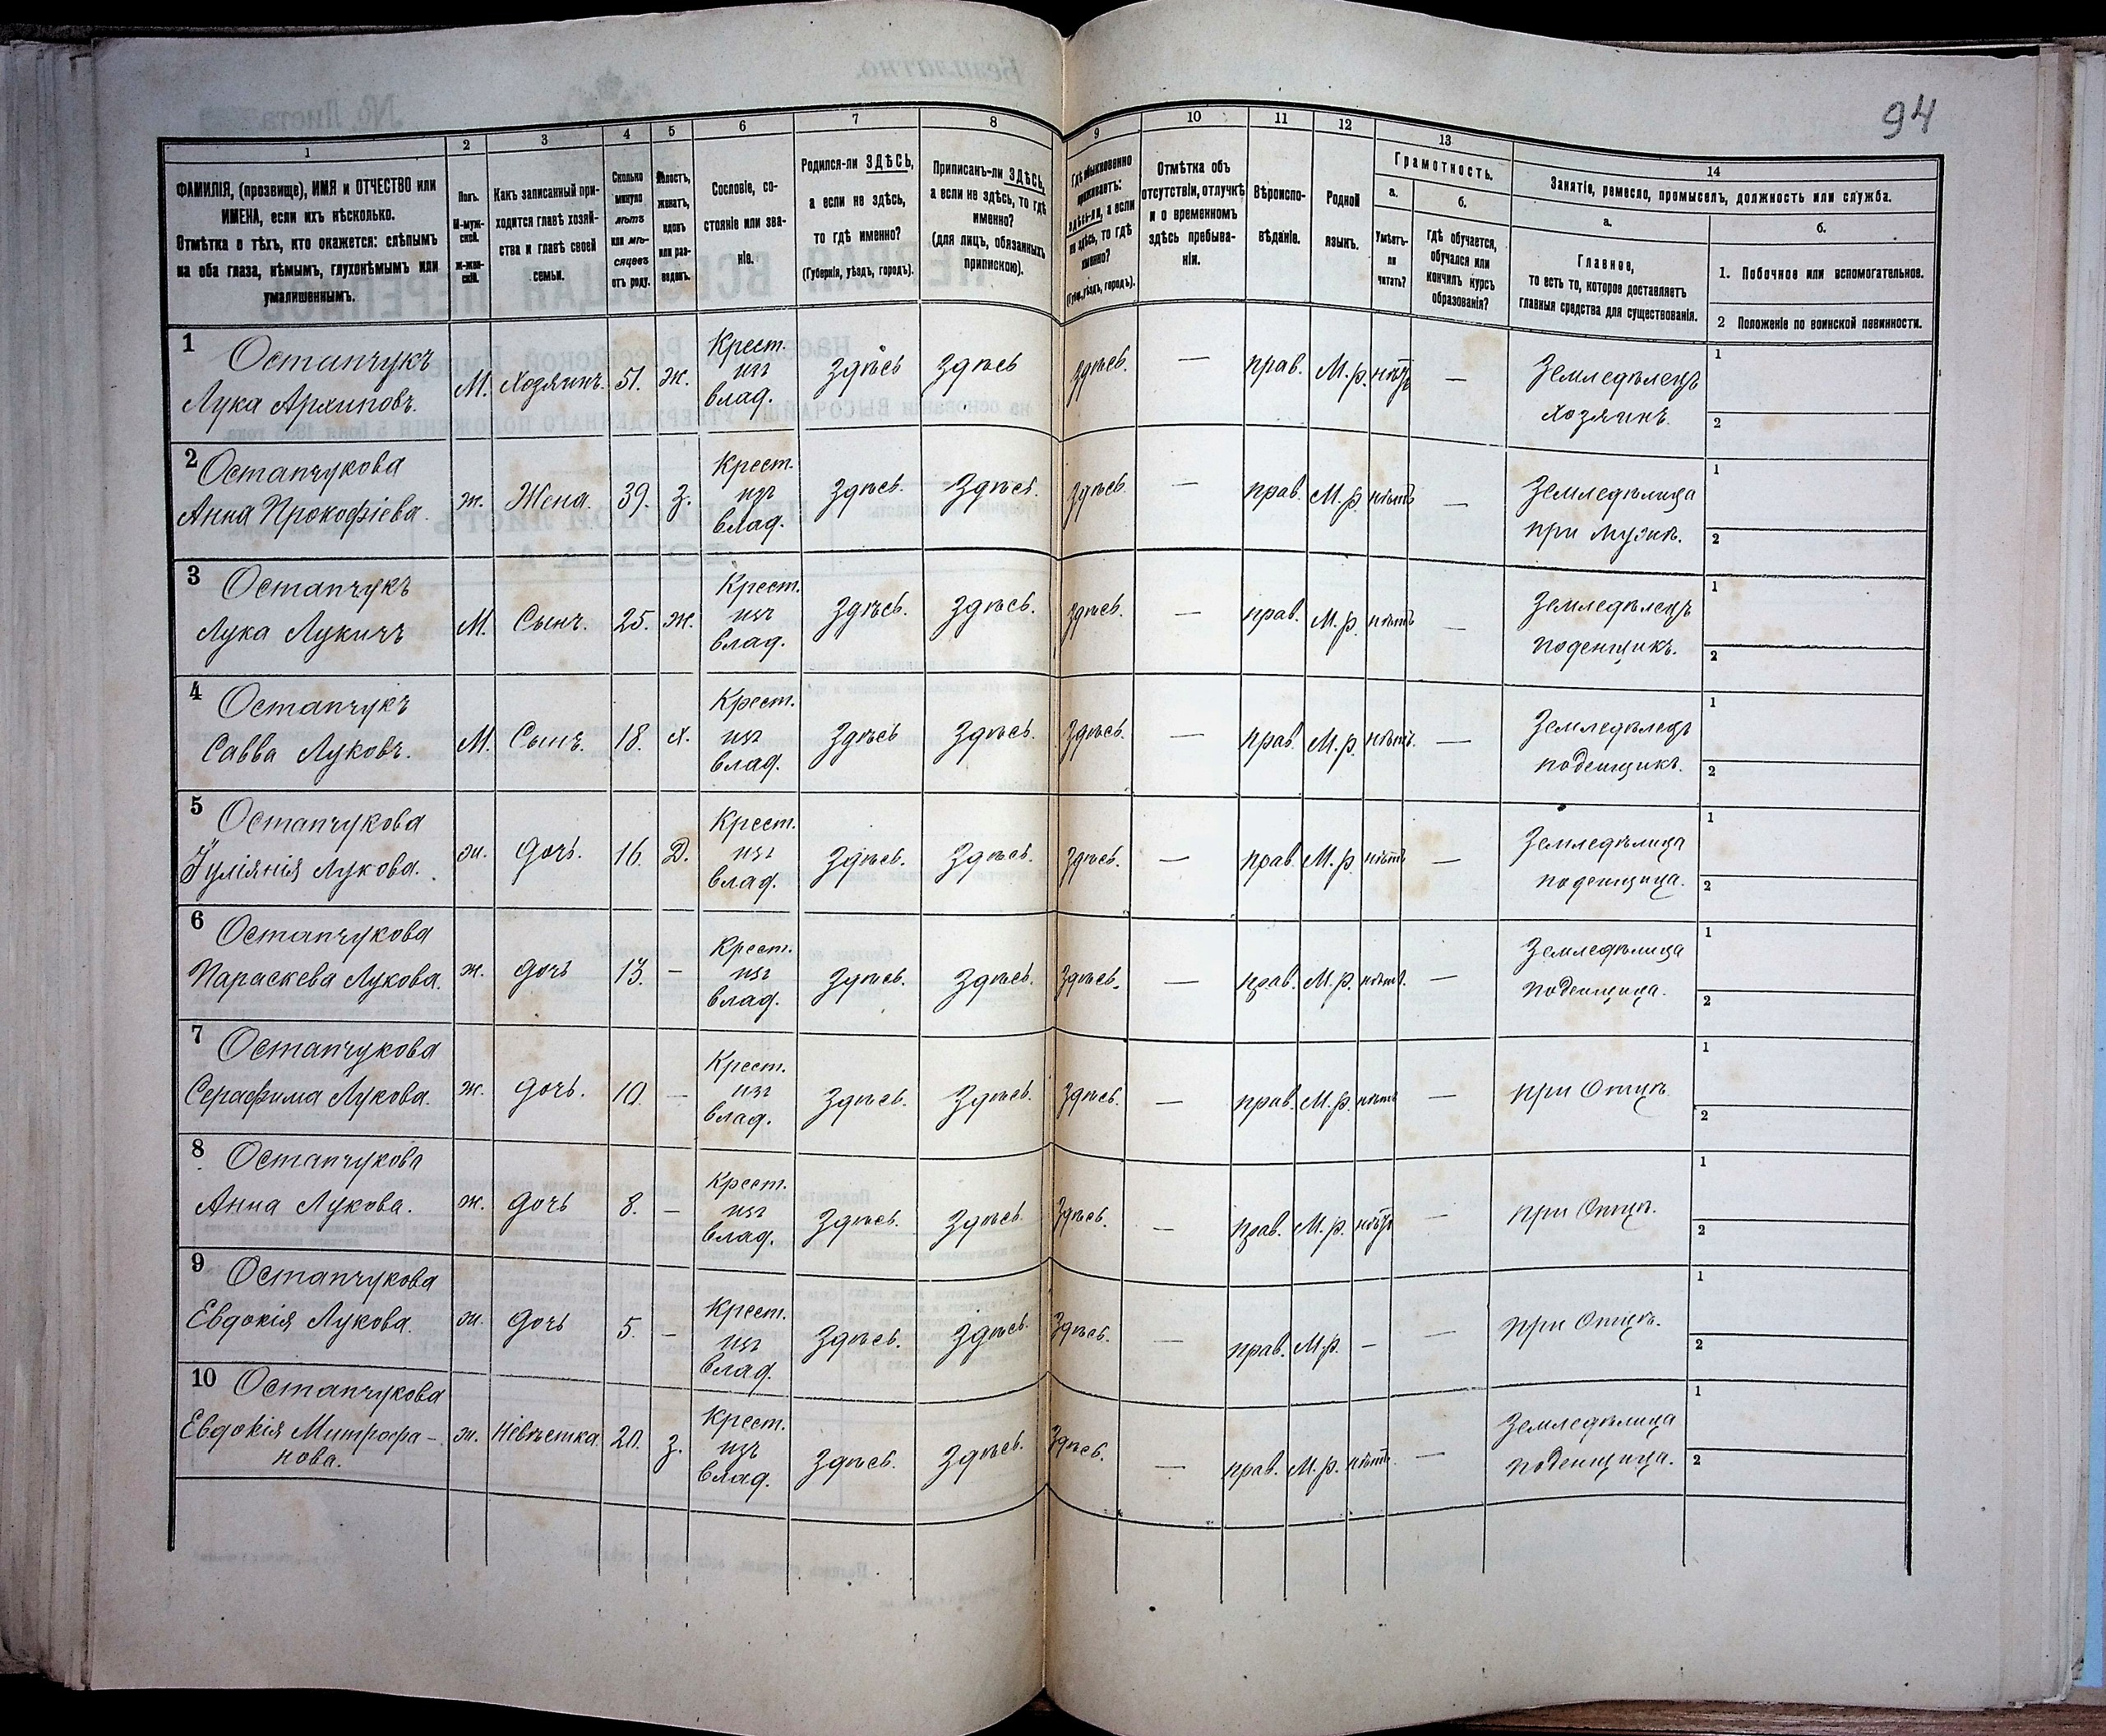 94
1
2
3
4
5
6
7
8
9
10
11
12
13
14
ФАМИЛІЯ, (прозвище), ИМЯ и ОТЧЕСТВО или
ИМЕНА, если ихъ нѣсколько.
Отмѣтка о тѣхъ, кто окажется: слѣпымъ
на оба глаза, нѣмымъ, глухонѣмымъ или
умалишеннымъ.
Полъ.
М-муж-
ской.
Ж-жен-
скій.
Какъ записанный при-
ходится главѣ хозяй-
ства и главѣ своей
семьи.
Сколько
минуло
лѣтъ
или мѣ-
сяцевъ
отъ роду.
Холостъ,
женатъ,
вдовъ
или раз-
веденъ.
Сословіе, со-
стояніе или зва-
ніе.
Родился-ли ЗДѢСЬ,
а если не здѣсь,
то гдѣ именно?
(Губернія, уѣздъ, городъ).
Приписанъ-ли ЗДѢСЬ,
а если не здѣсь, то гдѣ
именно?
(для лицъ, обязанныхъ
припискою).
Гдѣ обыкновенно
проживаетъ:
здѣсь-ли, а если
не здѣсь, то гдѣ
именно?
(Губ., уѣздъ, городъ).
Отмѣтка объ
отсутствіи, отлучкѣ
и о временномъ
здѣсь пребыва-
ніи.
Вѣроиспо-
вѣданіе.
Родной
языкъ.
Грамотность.
а.
Умѣетъ-
ли
читать?
б.
Гдѣ обучается,
обучался или
кончилъ курсъ
образованія?
Занятіе, ремесло, промыселъ, должность или служба.
а.
Главное,
то есть то, которое доставляетъ
главныя средства для существованія.
б.
1. Побочное или вспомогательное.
2 Положеніе по воинской повинности.
1 Остапчукъ
Лука Архиповъ.
М.
Хозяинъ.
51.
ж.
Крест.
изъ
влад.
Здѣсь
Здѣсь
Здѣсь.
—
прав.
М.р.
нѣтъ
—
Земледѣлецъ
хозяинъ.
1
2
2 Остапчукова
Анна Прокофіева.
ж.
Жена.
39.
З.
Крест.
изъ
влад.
Здѣсь.
Здѣсь.
Здѣсь.
—
прав.
М.р.
нѣтъ
—
Земледѣлица
при мужѣ.
1
2
3 Остапчукъ
Лука Лукичъ
М.
Сынъ.
25.
ж.
Крест.
изъ
влад.
Здѣсь.
Здѣсь.
Здѣсь.
—
прав.
М.р.
нѣтъ
—
Земледѣлецъ
поденщикъ.
1
2
4 Остапчукъ
Савва Луковъ.
М.
Сынъ.
18.
х.
Крест.
изъ
влад.
Здѣсь
Здѣсь.
Здѣсь.
—
прав.
М.р.
нѣтъ.
—
Земледѣлецъ
поденщикъ.
1
2
5 Остапчукова
Іуліянія Лукова.
ж.
дочь.
16.
Д.
Крест.
изъ
влад.
Здѣсь.
Здѣсь.
Здѣсь.
—
прав.
М.р.
нѣтъ
—
Земледѣлица
поденщица.
1
2
6 Остапчукова
Параскева Лукова.
ж.
дочь
13.
-
Крест.
изъ
влад.
Здѣсь.
Здѣсь.
Здѣсь.
—
прав.
М.р.
нѣтъ.
—
Земледѣлица
поденщица.
1
2
7 Остапчукова
Серафима Лукова.
ж.
дочь.
10.
-
Крест.
изъ
влад.
Здѣсь.
Здѣсь.
Здѣсь.
—
прав.
М.р.
нѣтъ
—
при Отцѣ.
1
2
8 Остапчукова
Анна Лукова.
ж.
дочь
8.
-
Крест.
изъ
влад.
Здѣсь.
Здѣсь.
Здѣсь.
—
прав.
М.р.
нѣтъ
—
при Отцѣ.
1
2
9 Остапчукова
Евдокія Лукова.
ж.
дочь
5.
-
Крест.
изъ
влад.
Здѣсь.
Здѣсь.
Здѣсь.
—
прав.
М.р.
-
—
при Отцѣ.
1
2
10 Остапчукова
Евдокія Митрофа-
нова.
ж.
Невѣстка.
20.
З.
Крест.
изъ
влад.
Здѣсь.
Здѣсь.
Здѣсь.
—
прав.
М.р.
нѣтъ.
—
Земледѣлица
поденщица.
1
2